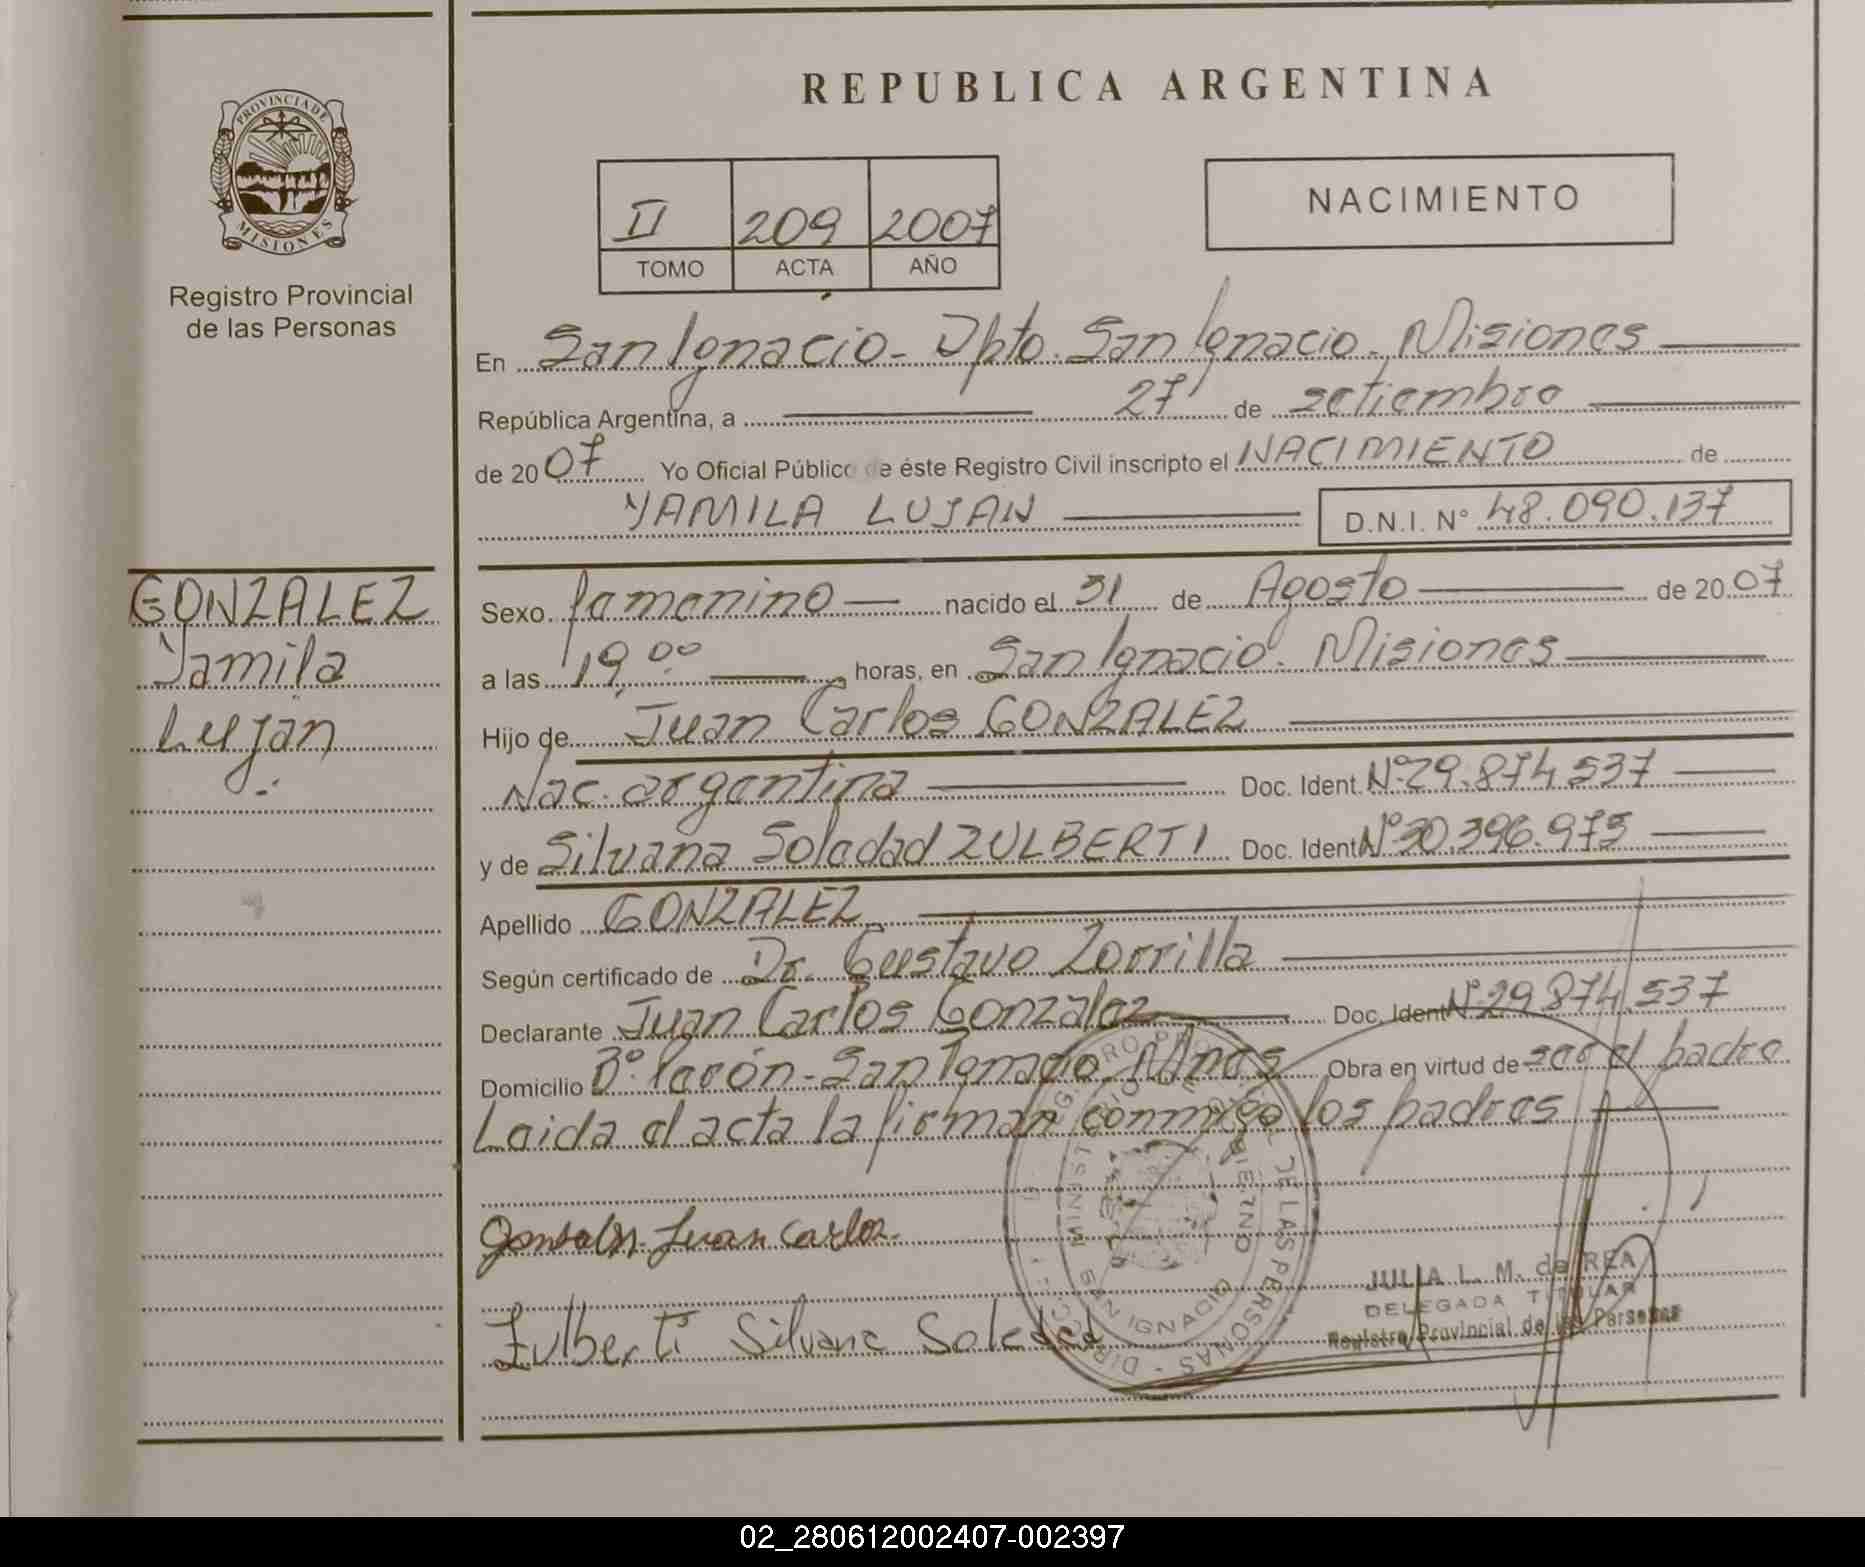 REPUBLICA ARGENTINA
PROVINCIA DE
MISIONES
Registro Provincial
de las Personas
II 209 2007
TOMO ACTA AÑO
NACIMIENTO
En San Ignacio - Dpto. San Ignacio. Misiones
República Argentina, a 27 de setiembre
de 2007 Yo Oficial Público de éste Registro Civil inscripto el NACIMIENTO de
YAMILA LUJAN D.N.I. N° 48.090.137
GONZALEZ
Yamila
Luján
Sexo femenino nacido el 31 de Agosto de 2007
a las 19,00 horas, en San Ignacio. Misiones
Hijo de Juan Carlos GONZALEZ
Nac. argentina Doc. Ident. N° 29.874.537
y de Silvana Soledad ZULBERTI Doc. Ident N° 30.396.975
Apellido GONZALEZ
Según certificado de Dr. Gustavo Zorrilla
Declarante Juan Carlos Gonzalez Doc. Ident N° 29.874.537
Domicilio B° Perón - San Ignacio Mnes Obra en virtud de ser el padre
Leida el acta la firman conmigo los padres
Gonsales Juan Carlos.
Zulberti Silvana Soledad
SAN IGNACIO
JULIA L. M. de REA
DELEGADA TITULAR
Registro Provincial de las Personas
02_280612002407-002397